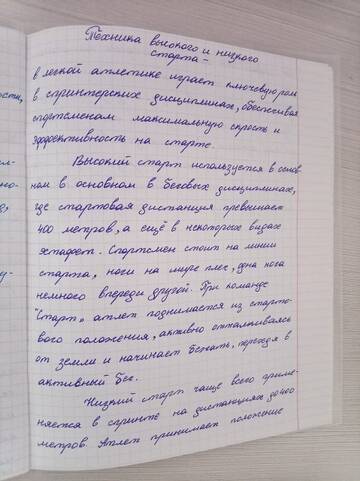 Техника высокого и низкого
старта -
в легкой атлетике играет ключевую рол
в спринтерских дисциплинах, обеспечивая
спортсменам максимальную скрость и
эффективность на старте.
Высокий старт используется в основ
ном в основном в беговых дисциплинах,
где стартовая дистанция превышает
400 метров, а ещё в некоторых видах
эстафет. Спортсмен стоит на линии
старта, ноги на шире плеч, одна нога
немного впереди другой. При команде
"Старт" атлет поднимается из старто-
вого положения, активно отталкиваясь
от земли и начинает бежать, переходя в
активный бег.
Низкий старт чаще всего приме-
няется в спринте на дистанциях до 400
метров. Атлет принимает положение